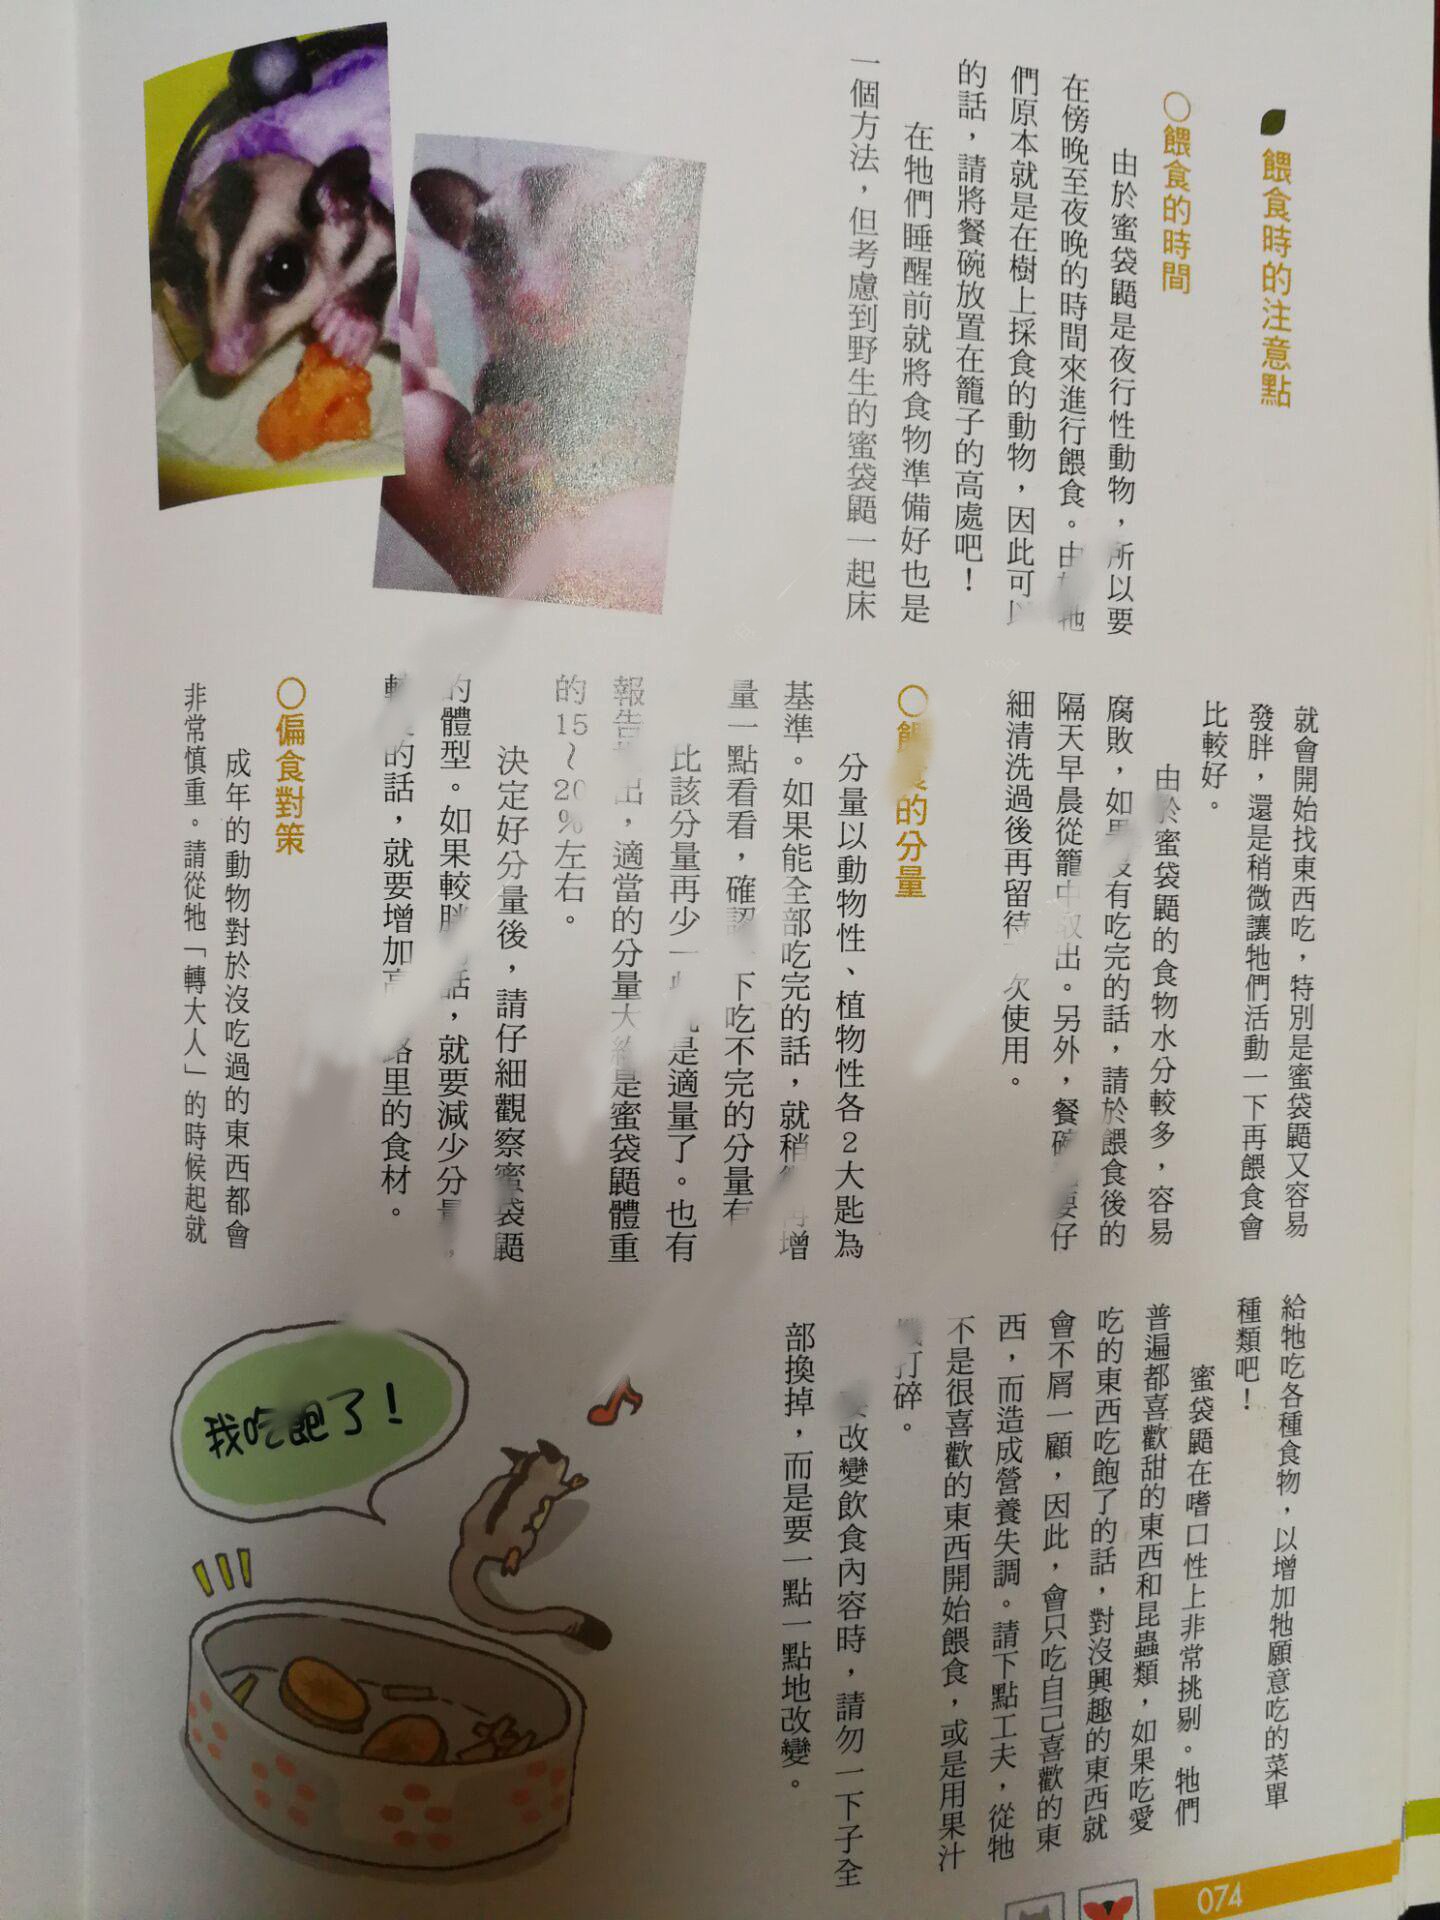 餵食時的注意點
○餵食的時間
由於蜜袋鼯是夜行性動物，所以要
在傍晚至夜晚的時間來進行餵食。由 牠
們原本就是在樹上採食的動物，因此可
的話，請將餐碗放置在籠子的高處吧！
在牠們睡醒前就將食物準備好也是
一個方法，但考慮到野生的蜜袋鼯一起床
就會開始找東西吃，特別是蜜袋鼯又容易
發胖，還是稍微讓牠們活動一下再餵食會
比較好。
由於蜜袋鼯的食物水分較多，容易
腐敗，如果沒有吃完的話，請於餵食後的
隔天早晨從籠中取出。另外，餐碗 要仔
細清洗過後再留待 次使用。
○ 的分量
分量以動物性、植物性各2大匙為
基準。如果能全部吃完的話，就稍 再增
量一點看看，確認 下吃不完的分量有
比該分量再少一些 是適量了。也有
報告 出，適當的分量大約是蜜袋鼯體重
的15～20%左右。
決定好分量後，請仔細觀察蜜袋鼯
的體型。如果較胖 話，就要減少分量，
較 的話，就要增加高 路里的食材。
○偏食對策
成年的動物對於沒吃過的東西都會
非常慎重。請從牠「轉大人」的時候起就
給牠吃各種食物，以增加牠願意吃的菜單
種類吧！
蜜袋鼯在嗜口性上非常挑剔。牠們
普遍都喜歡甜的東西和昆蟲類，如果吃愛
吃的東西吃飽了的話，對沒興趣的東西就
會不屑一顧，因此，會只吃自己喜歡的東
西，而造成營養失調。請下點工夫，從牠
不是很喜歡的東西開始餵食，或是用果汁
機打碎。
要改變飲食內容時，請勿一下子全
部換掉，而是要一點一點地改變。
我吃飽了！
074